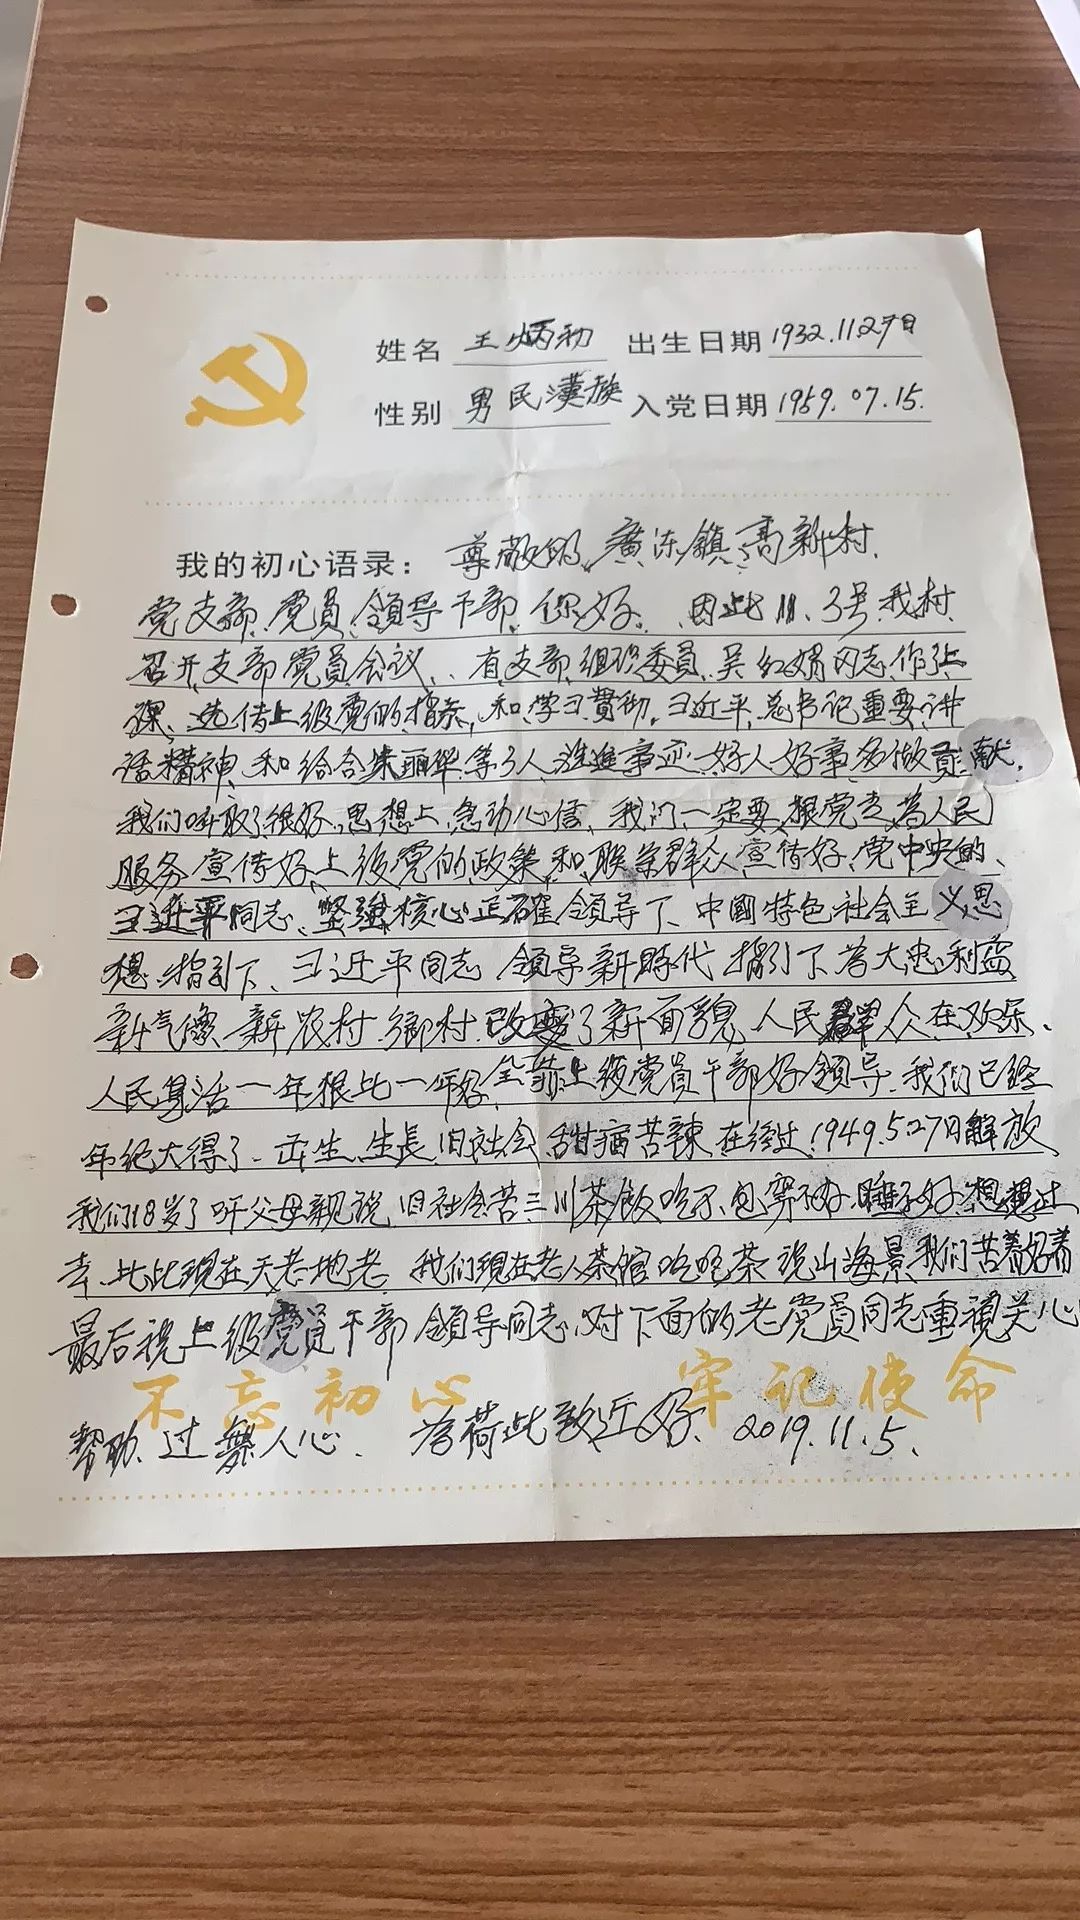 姓名 王炳初 出生日期 1932.11.27日
性别 男民漢族 入党日期 1959.07.15.
我的初心语录：尊敬的、廣陈鎮、高新村、
党支部、党员、領导干部、你好、因此11.3号我村
召开支部党员会议、有支部、组织委员、吴红娟同志作上
课、选传上级党的指示，和学习贯彻，习近平总书记重要讲
话精神、和给合朱丽华等3人 進事迹、好人好事多做貢献，
我们听取了很好、思想上、急动心信、我门一定要、跟党走、為人民
服务宣传好上级党的政策、和联系群众宣传好、党中央的、
习近平同志、坚强核心正確領导下、中國特色社会主义思
想、指引下、习近平同志 領导新時代 指引下、為大忠利益
新气像、新农村、鄉村改变了新面貌 人民群众在欢乐、
人民身活一年根比一年好 全靠上级党员干部好領导、我们已经
年纪大得了、出生、生長、旧社会、甜酒苦辣 在经过、1949.5.27日解放
我们18岁了听父母親说、旧社会苦三川茶饭吃不包穿不好睡不好想想过
去、比比现在天老地老、我们現在老人茶馆吃吃茶说山海景我们苦着好着
最后祝上级党员干部 領导同志、对下面的老党员同志重視关心
不忘初心 牢记使命
帮助、过 人心、為荷此致近好、2019.11.5、